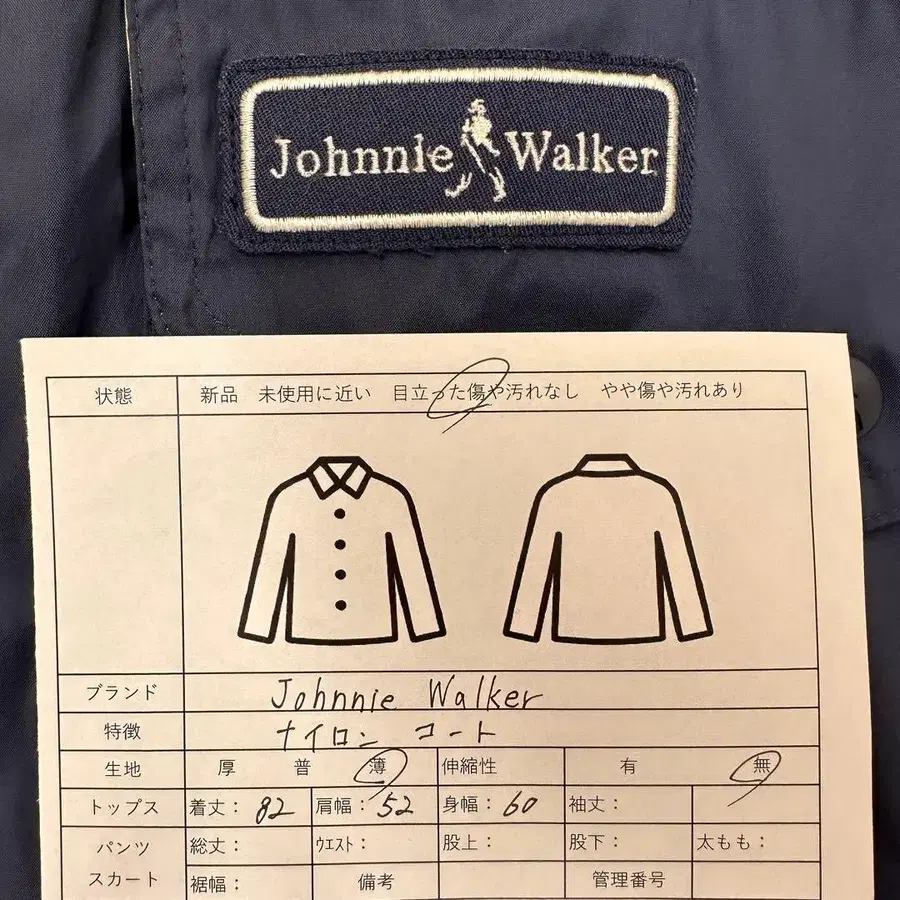 Johnnie Walker
状態 新品 未使用に近い 目立った傷や汚れなし やや傷や汚れあり
ブランド Johnnie Walker
特徴 ナイロン コート
生地 厚 普 薄 伸縮性 有 無
トップス 着丈: 82 肩幅: 52 身幅: 60 袖丈:
パンツ 総丈: ウエスト: 股上: 股下: 太もも:
スカート 裾幅: 備考 管理番号